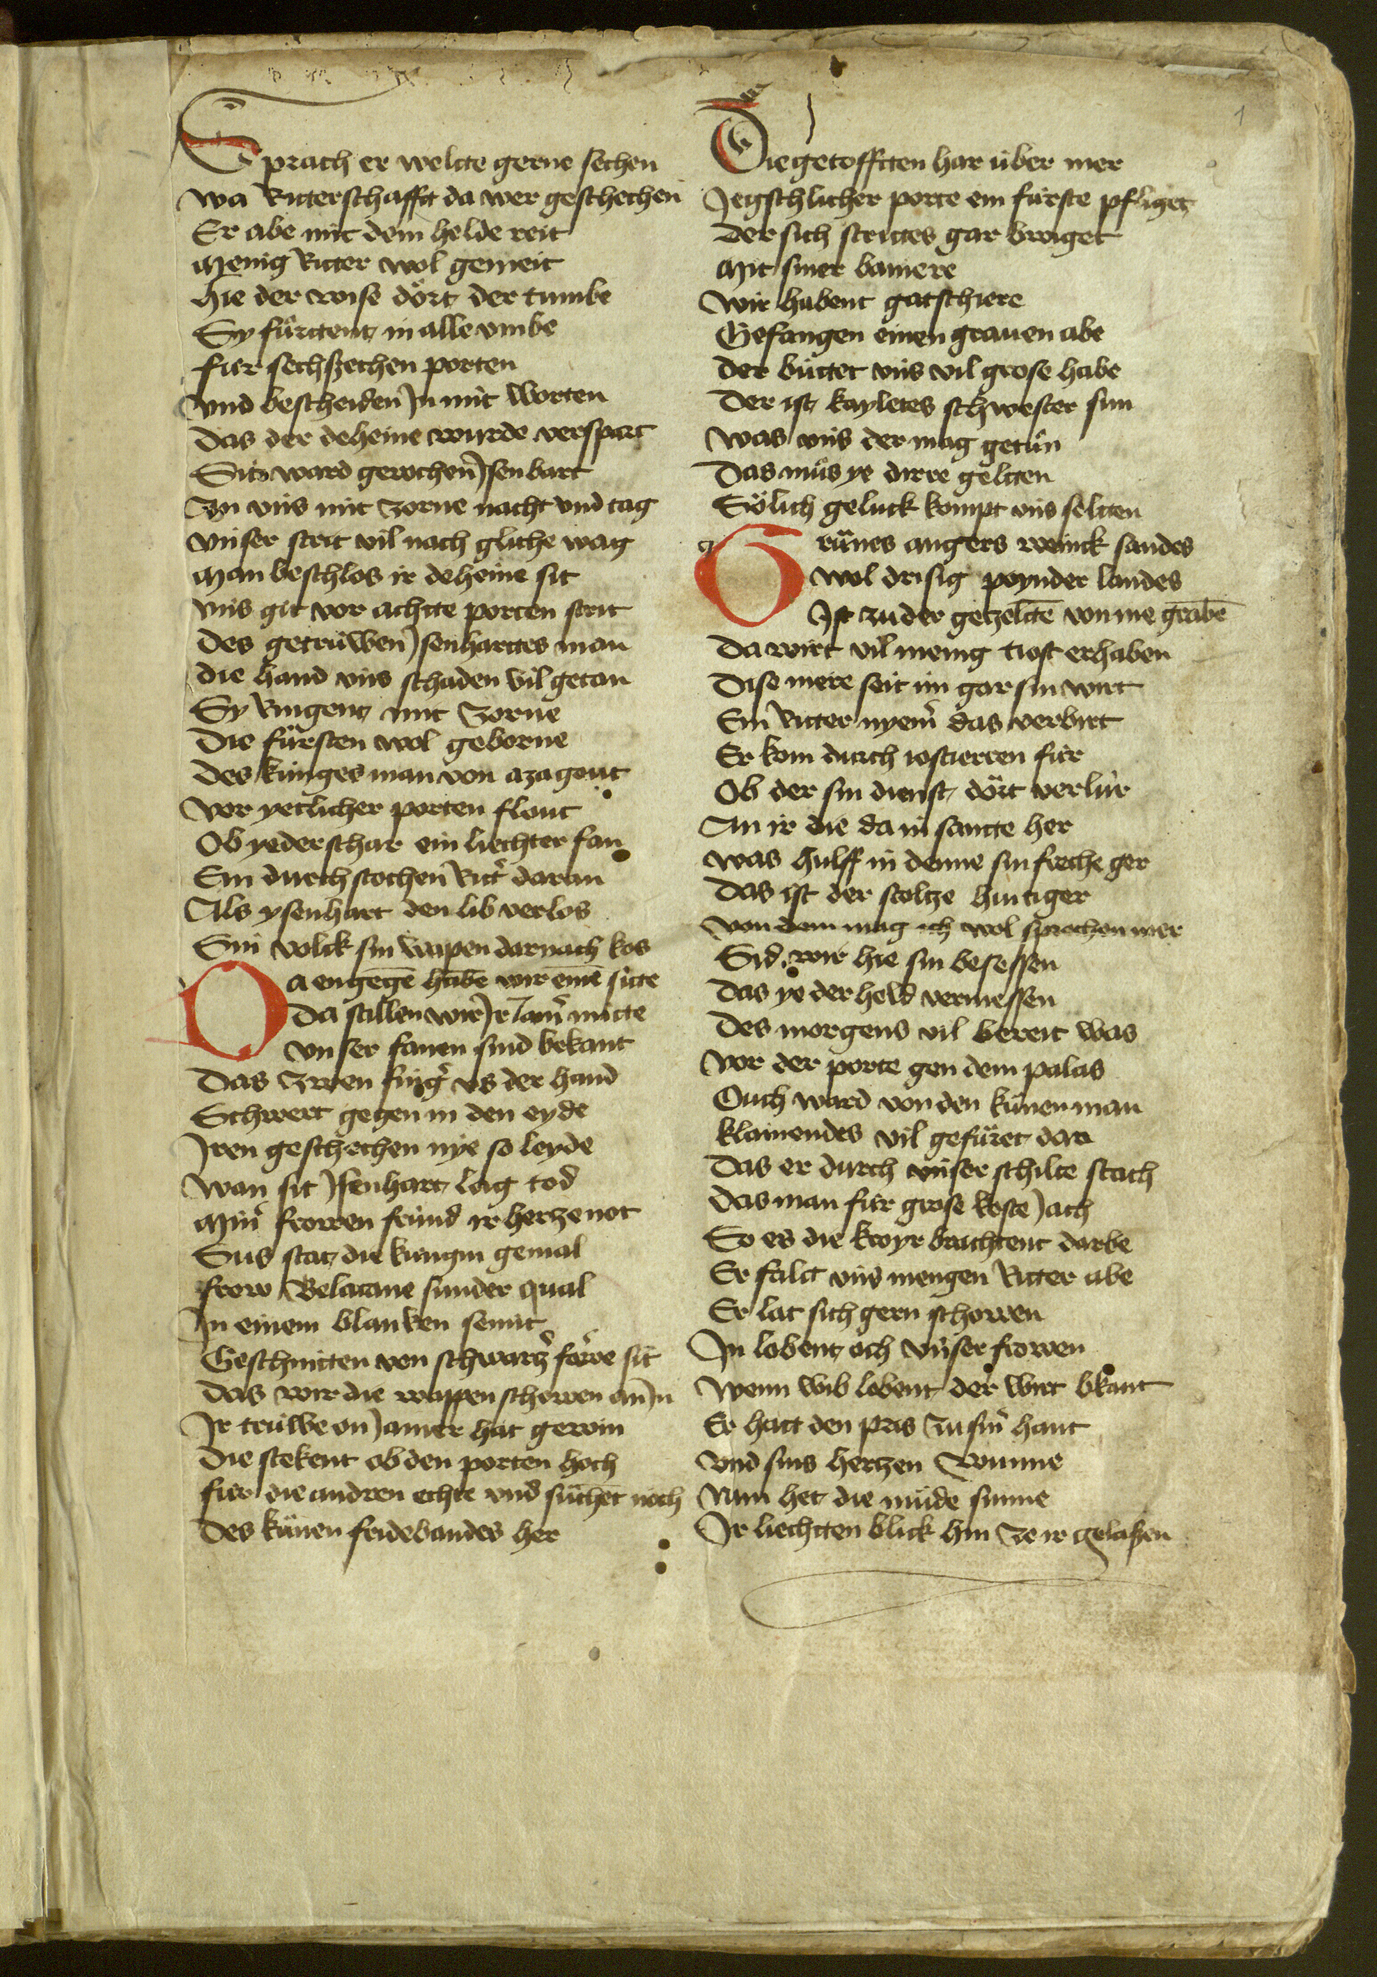 Sprach er welcte gerne sechen
wa Ritterschafft da wer geschechen
Er abe mit dem helde reit
Menig Ritter wol gemeit
hie der wise dört der tumbe
Sy fürttent in alle vmbe
für sechszechen porten
vnd bescheiden Jn mit Worten
das der deheine wurde verspart
Sit ward gerochen Jsenhart
An vns mit zorne nacht vnd tag
vnser strit vil nach gliche wag
Man beschlos ir deheine sit
vns git vor achtte porten strit
des getrüwen Jsenharttes man
die hand vns schaden vil getan
Sy Ringent mit zorne
die fürsten wol geborne
des künges man von azagout
vor yetlicher porten flout
Ob yeder schar ein liechter fan
Ein durchstochen Rittr̃ daran
Als ysenhart den lib verlos
Sin volck sin wapen darnach kos
Da engegẽ habẽ wir einẽ sitte
Da stillen wir Jr Jamr̃ mitte
vnser fanen sind bekant
Das zwen fingr̃ vs der hand
Schwert gegen in den eyde
Jren geschechen nye so leyde
wan sit Jsenhart lag tod
Minr̃ frowen fründ ir hertze not
Sus stat die küngin gemal
frow Belacane sunder qual
Jn einem blanken semit
Geschnitten von schwartzr̃ farwe sit
das wir die wappen schowen an Jn
Jr trüwe on Jamer hat gewin
die stekent ob den porten hoch
für die andren echte vnd sůchet noch
des künen fridebandes her
Die getofftten har über mer
Jegschlicher porte ein fürste pfliget
der sich strittes gar bewiget
Mit siner baniere
wir habent gatschiere
Gefangen einen grauen abe
der büttet vns vil grose habe
Der ist kayletes schwester sun
was vns der mag getůn
Das můs ye dirre geltten
Sölich gelück kompt vns seltten
Grünes angers wenick sandes
wol drisig poynder landes
Jst zu der getzeltẽ von me grabẽ
Da wirt vil menig tiost erhaben
Dise mere seit im gar sin wirt
Ein Ritter nyemr̃ das verbirt
Er kom durch iostierren für
Ob der sin dienst dört verlür
An ir die da in sante her
was hulff in denne sin freche ger
das ist der stoltze hutiger
von dem mag ich wol sprechen mer
Sid wir hie sin besessen
das ye der held vermessen
des morgens vil bereit was
vor der porte gen dem palas
Ouch ward von den künen man
klainendes vil gefüret dan
das er durch vnser schilte stach
das man für grose koste Jach
So es die kroyr brachtent darbe
Er falt vns mengen Ritter abe
Er lat sich gern schowen
Jn lobent och vnser frowen
wenn wib lobent der wirt bkant
Er hatt den pris zu sinr̃ hant
vnd sins hertzen wunne
Nun het die müde sunne
Jr liechtten blick hin ze ir gelassen
1